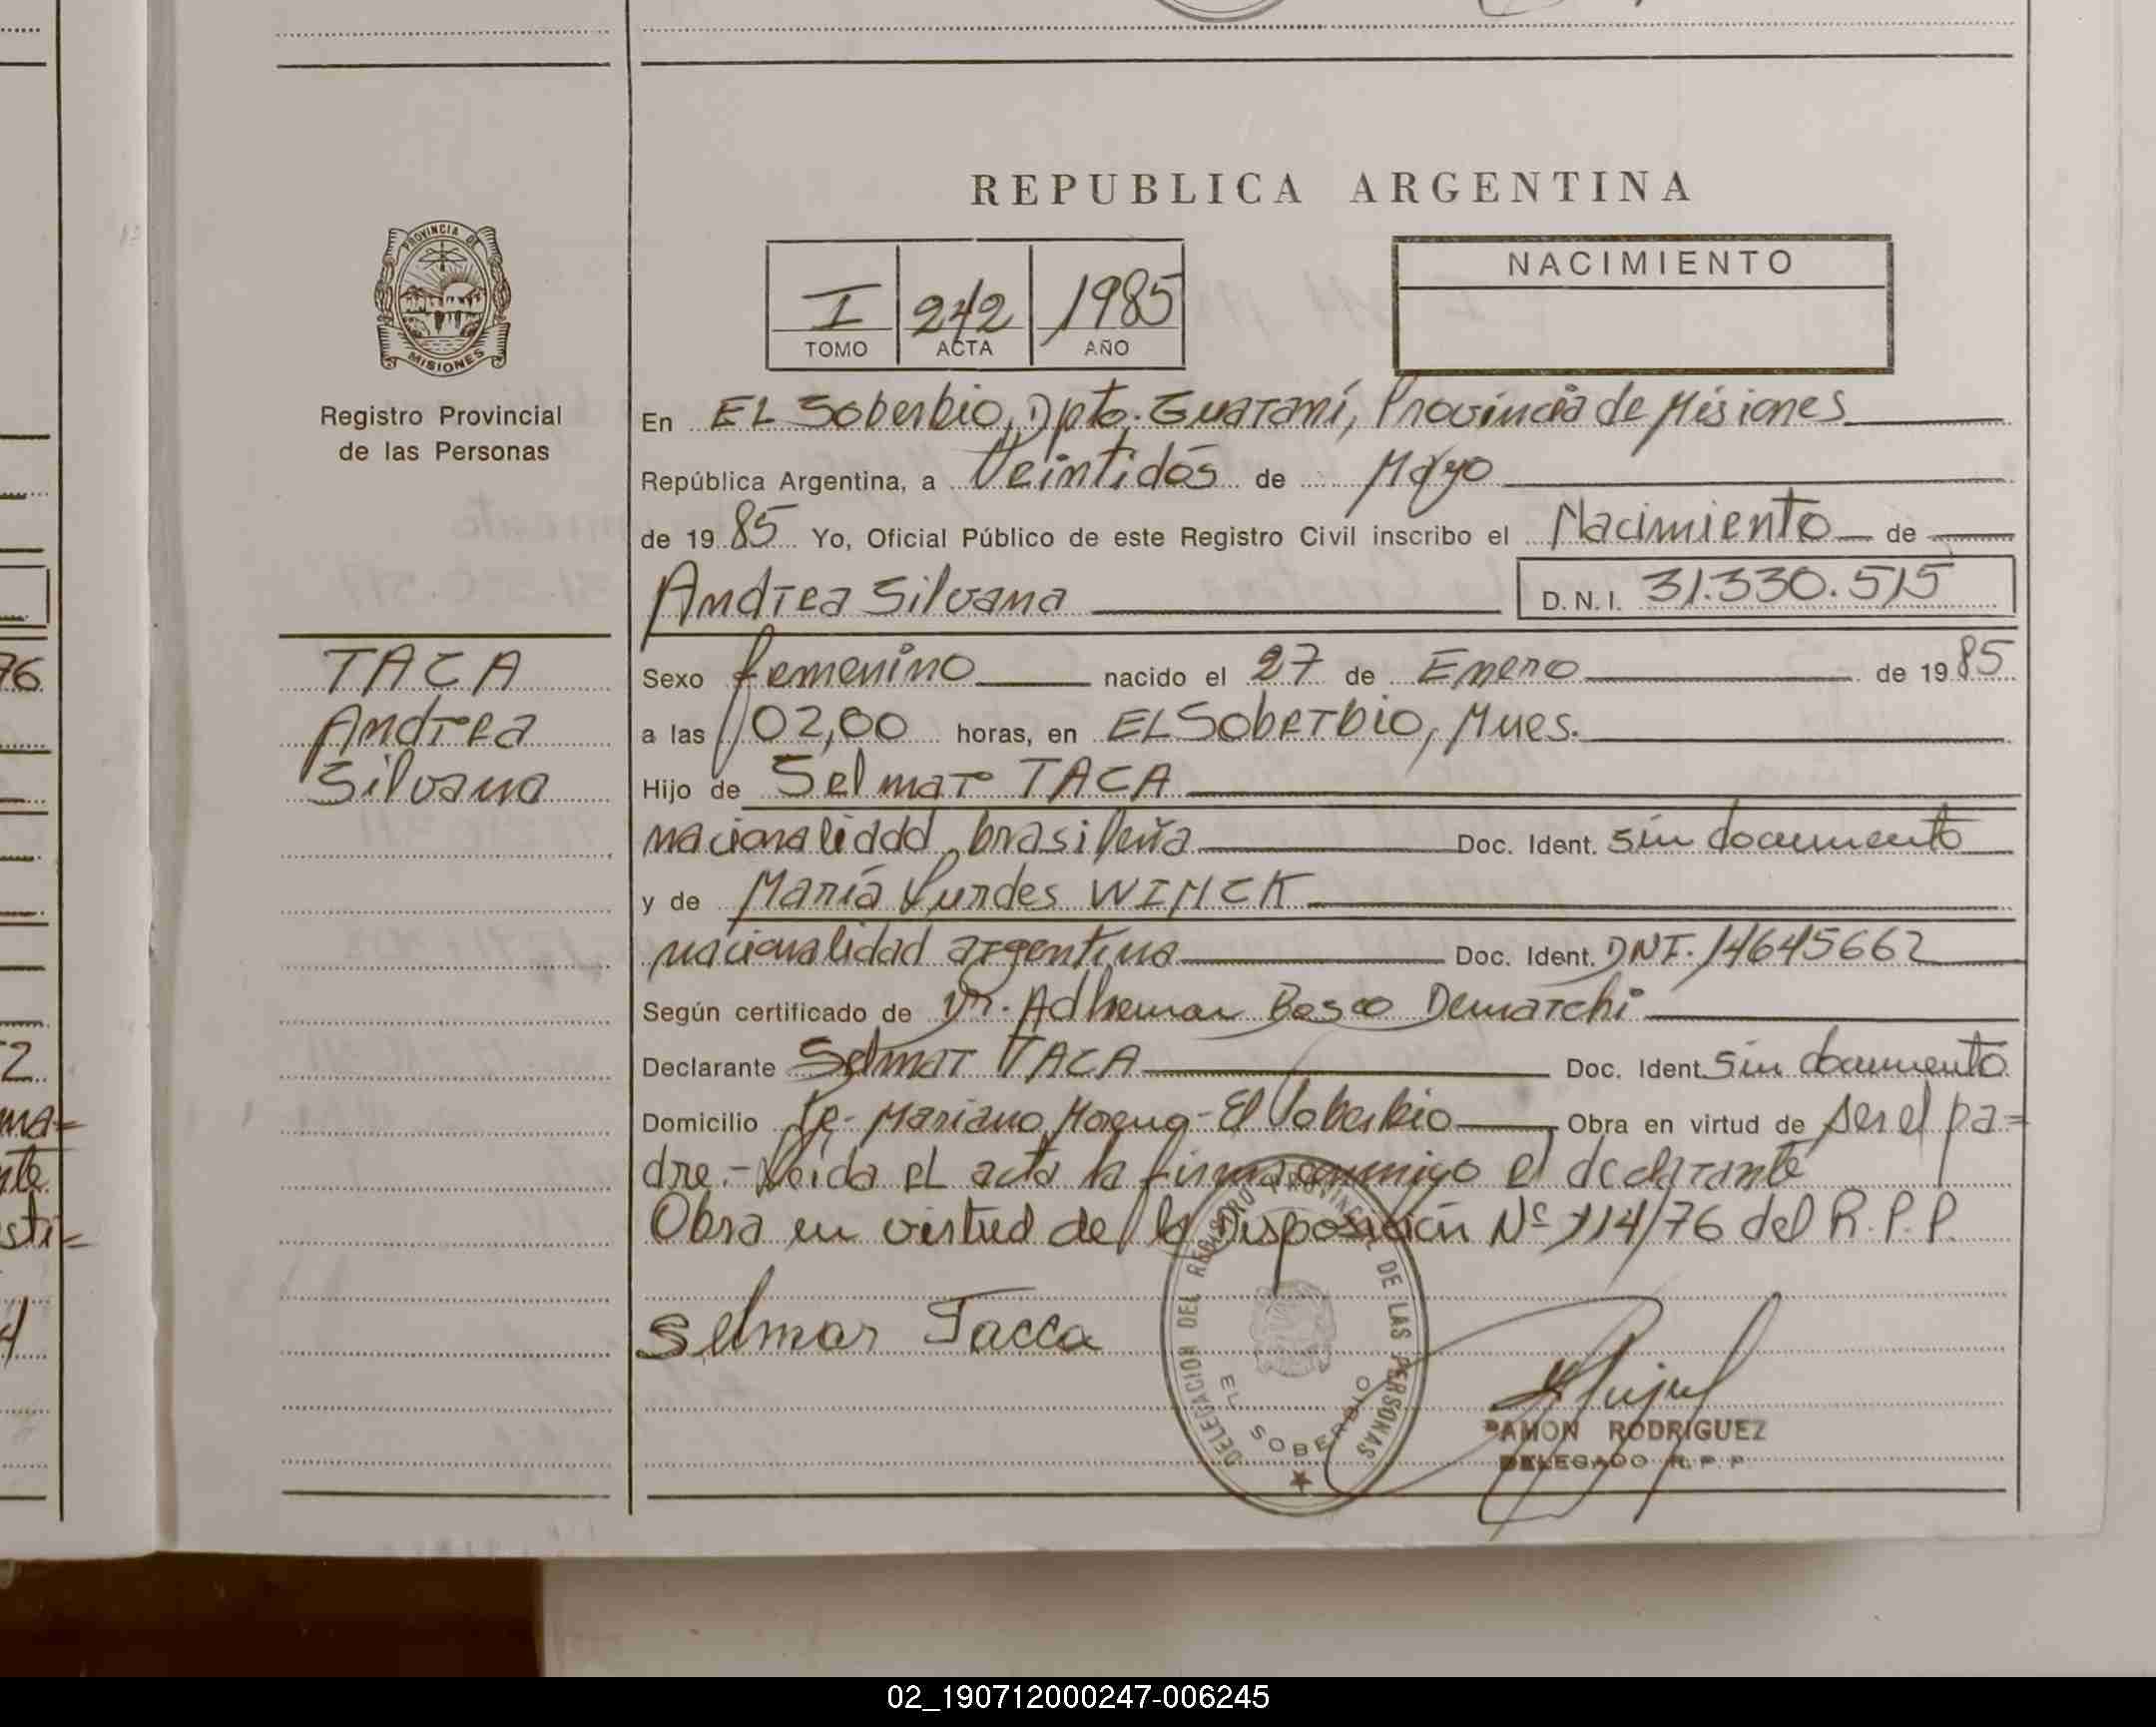 REPUBLICA ARGENTINA
PROVINCIA DE
MISIONES
Registro Provincial
de las Personas
I 242 1985
TOMO ACTA AÑO
NACIMIENTO
En EL Soberbio, Dpto. Guaraní, Provincia de Misiones
República Argentina, a Veintidós de Mayo
de 1985 Yo, Oficial Público de este Registro Civil inscribo el Nacimiento de
Andrea Silvana D.N.I. 31.330.515
TACA
Andrea
Silvana
Sexo femenino nacido el 27 de Enero de 1985
a las 02,00 horas, en EL Soberbio, Mnes.
Hijo de Selmar TACA
nacionalidad brasileña Doc. Ident. sin documento
y de María Lurdes WINCK
nacionalidad argentina Doc. Ident. DNI. 14645662
Según certificado de Dr. Adhemar Bosco Demarchi
Declarante Selmar TACA Doc. Ident. Sin documento
Domicilio Mariano Moreno - El Soberbio Obra en virtud de ser el pa=
dre.- Leída el acta la firma conmigo el declarante
Obra en virtud de la Disposición Nº 114/76 del R.P.P.
Selmar Tacca
DELEGACION DEL REGISTRO PROVINCIAL DE LAS PERSONAS
EL SOBERBIO
RAMON RODRIGUEZ
DELEGADO R.P.P
76
2
ma=
nte
sti=
4
02_190712000247-006245